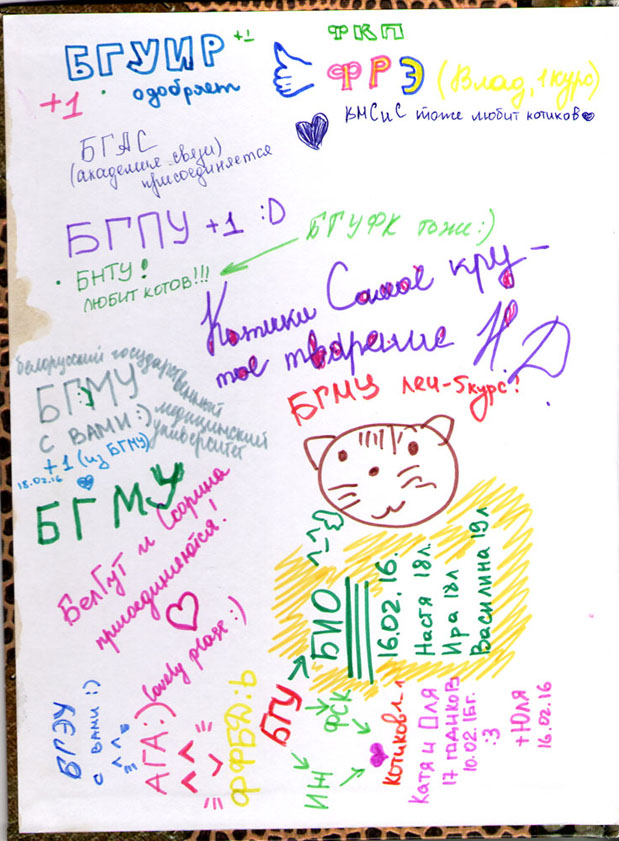 БГУИР +1
+1
одобряет
ФКП
ФРЭ (Влад, 1 курс)
КМСиС тоже любит котиков
БГАС
(академия связи)
присоединяется
БГПУ +1 :D
БГУФК тоже :)
БНТУ!
ЛЮБИТ КОТОВ!!!
Котики Самое кру-
тое творение
белорусский государственный
медицинский
университет
БГМУ
С ВАМИ :)
+1 (из БГМУ)
18.02.16
БГМУ леч-5курс!
БГМУ
БелГУТ и
присоединяются!
lovely place :)
БИО ^-^
16.02.16.
Настя 18л.
Ира 18л
Василина 19л
БГЭУ
С ВАМИ :)
^^
АГА :)
ФФБД :b
БГУ
ФСК
ИЖ
Катя и Оля
17 годиков
10.02.16г.
:3
+Юля
16.02.16